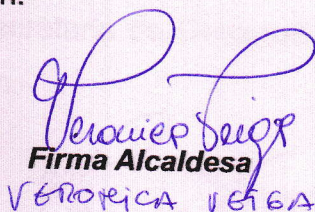 n.
Veronica Veiga
Firma Alcaldesa
VERONICA VEIGA